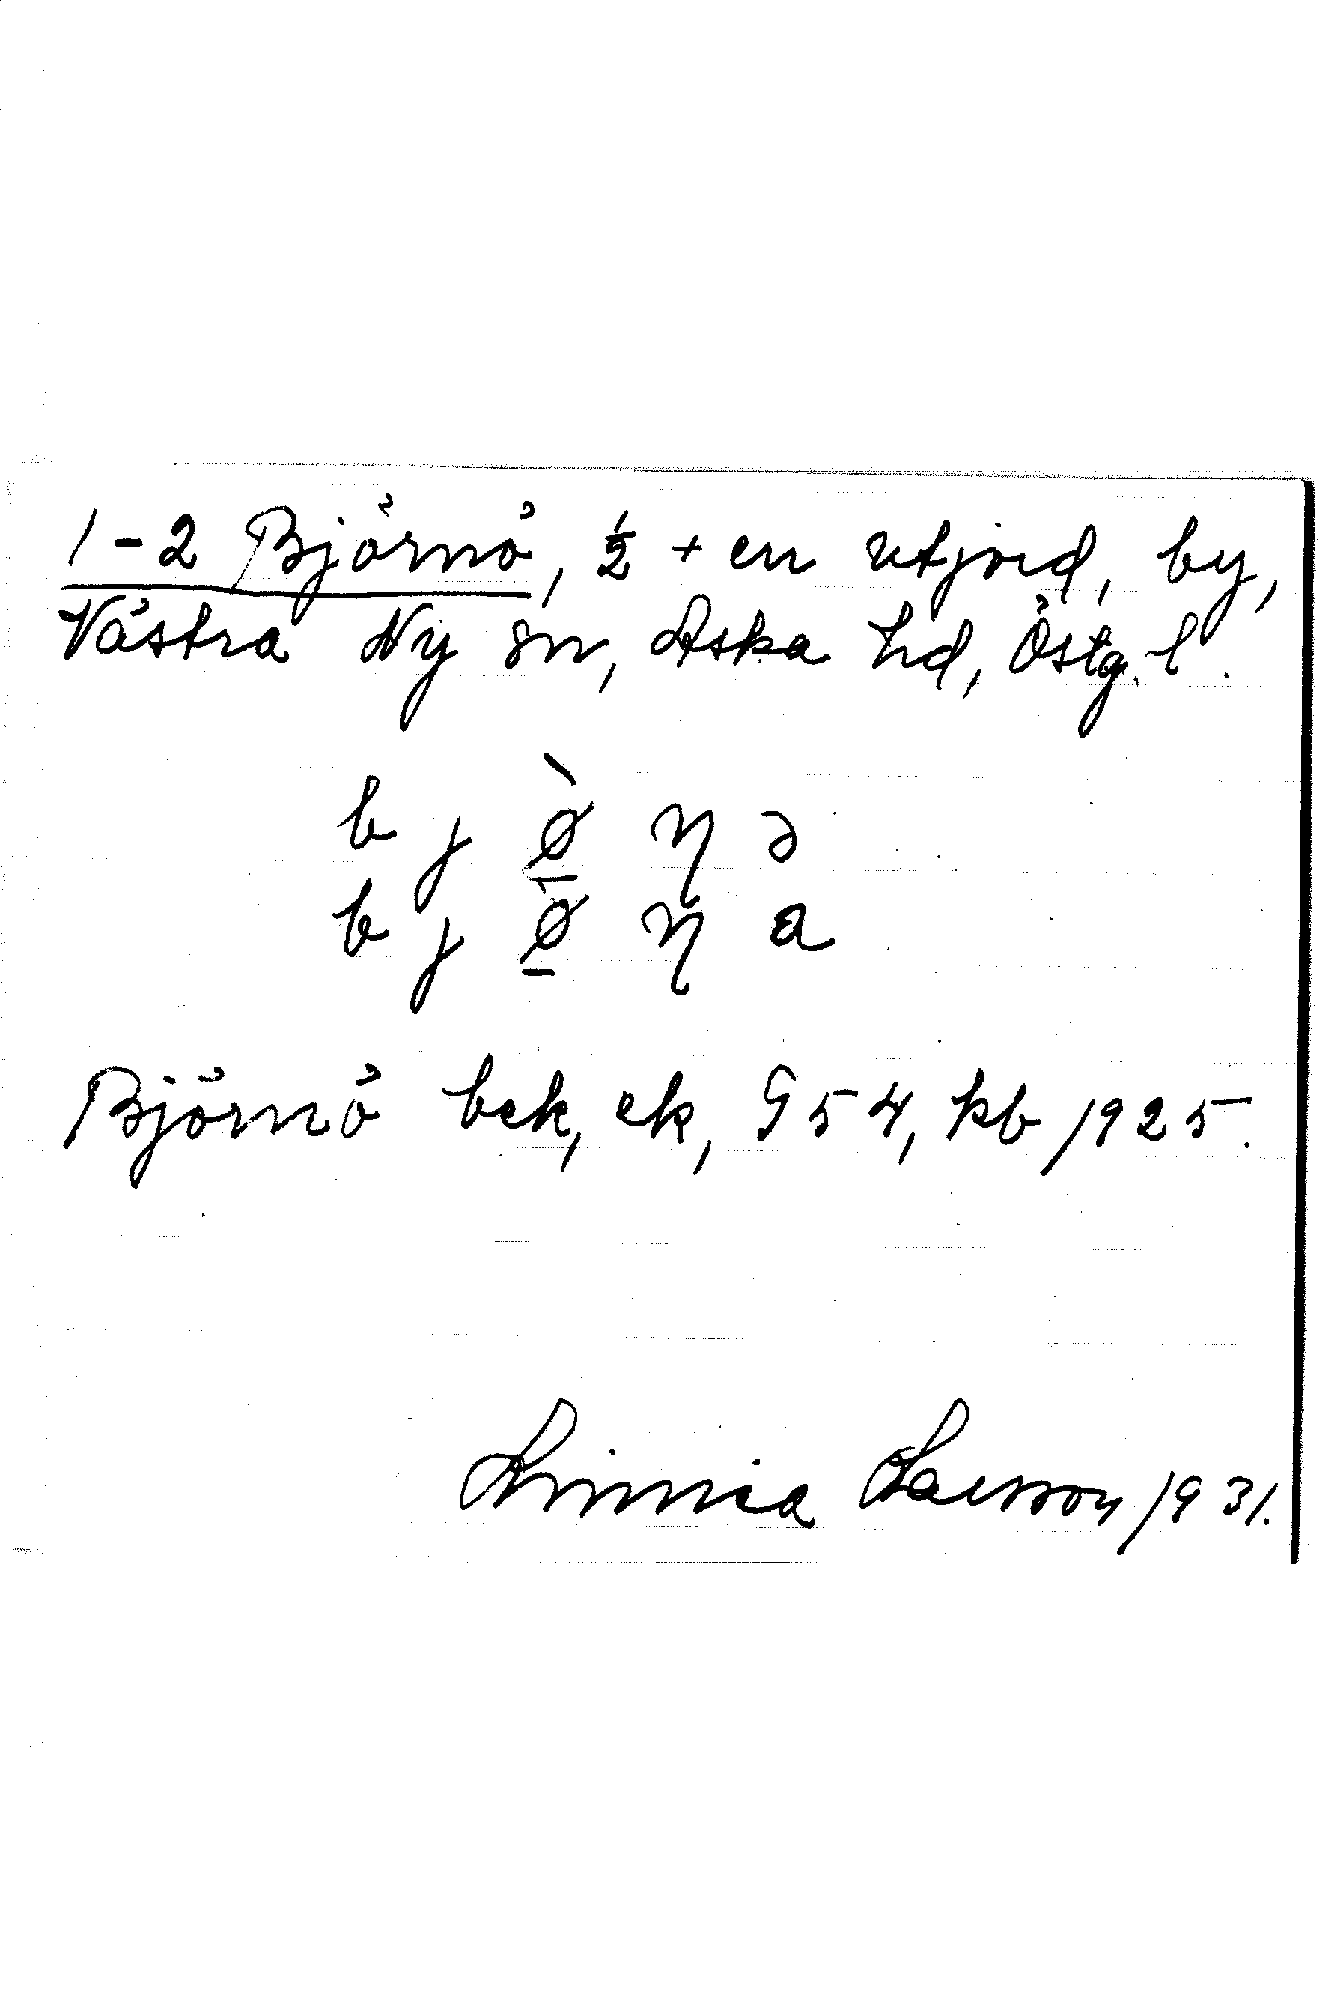 1-2 Björnö, ½ + en utjord, by,
Västra Ny sn, Aska hd, Östg. l.
b j ø̠̀ ɳ ə
b j ø̠ ɳ a
Björnö bek, ek, G54, kb 1925.
Linnea Larsson 1931.